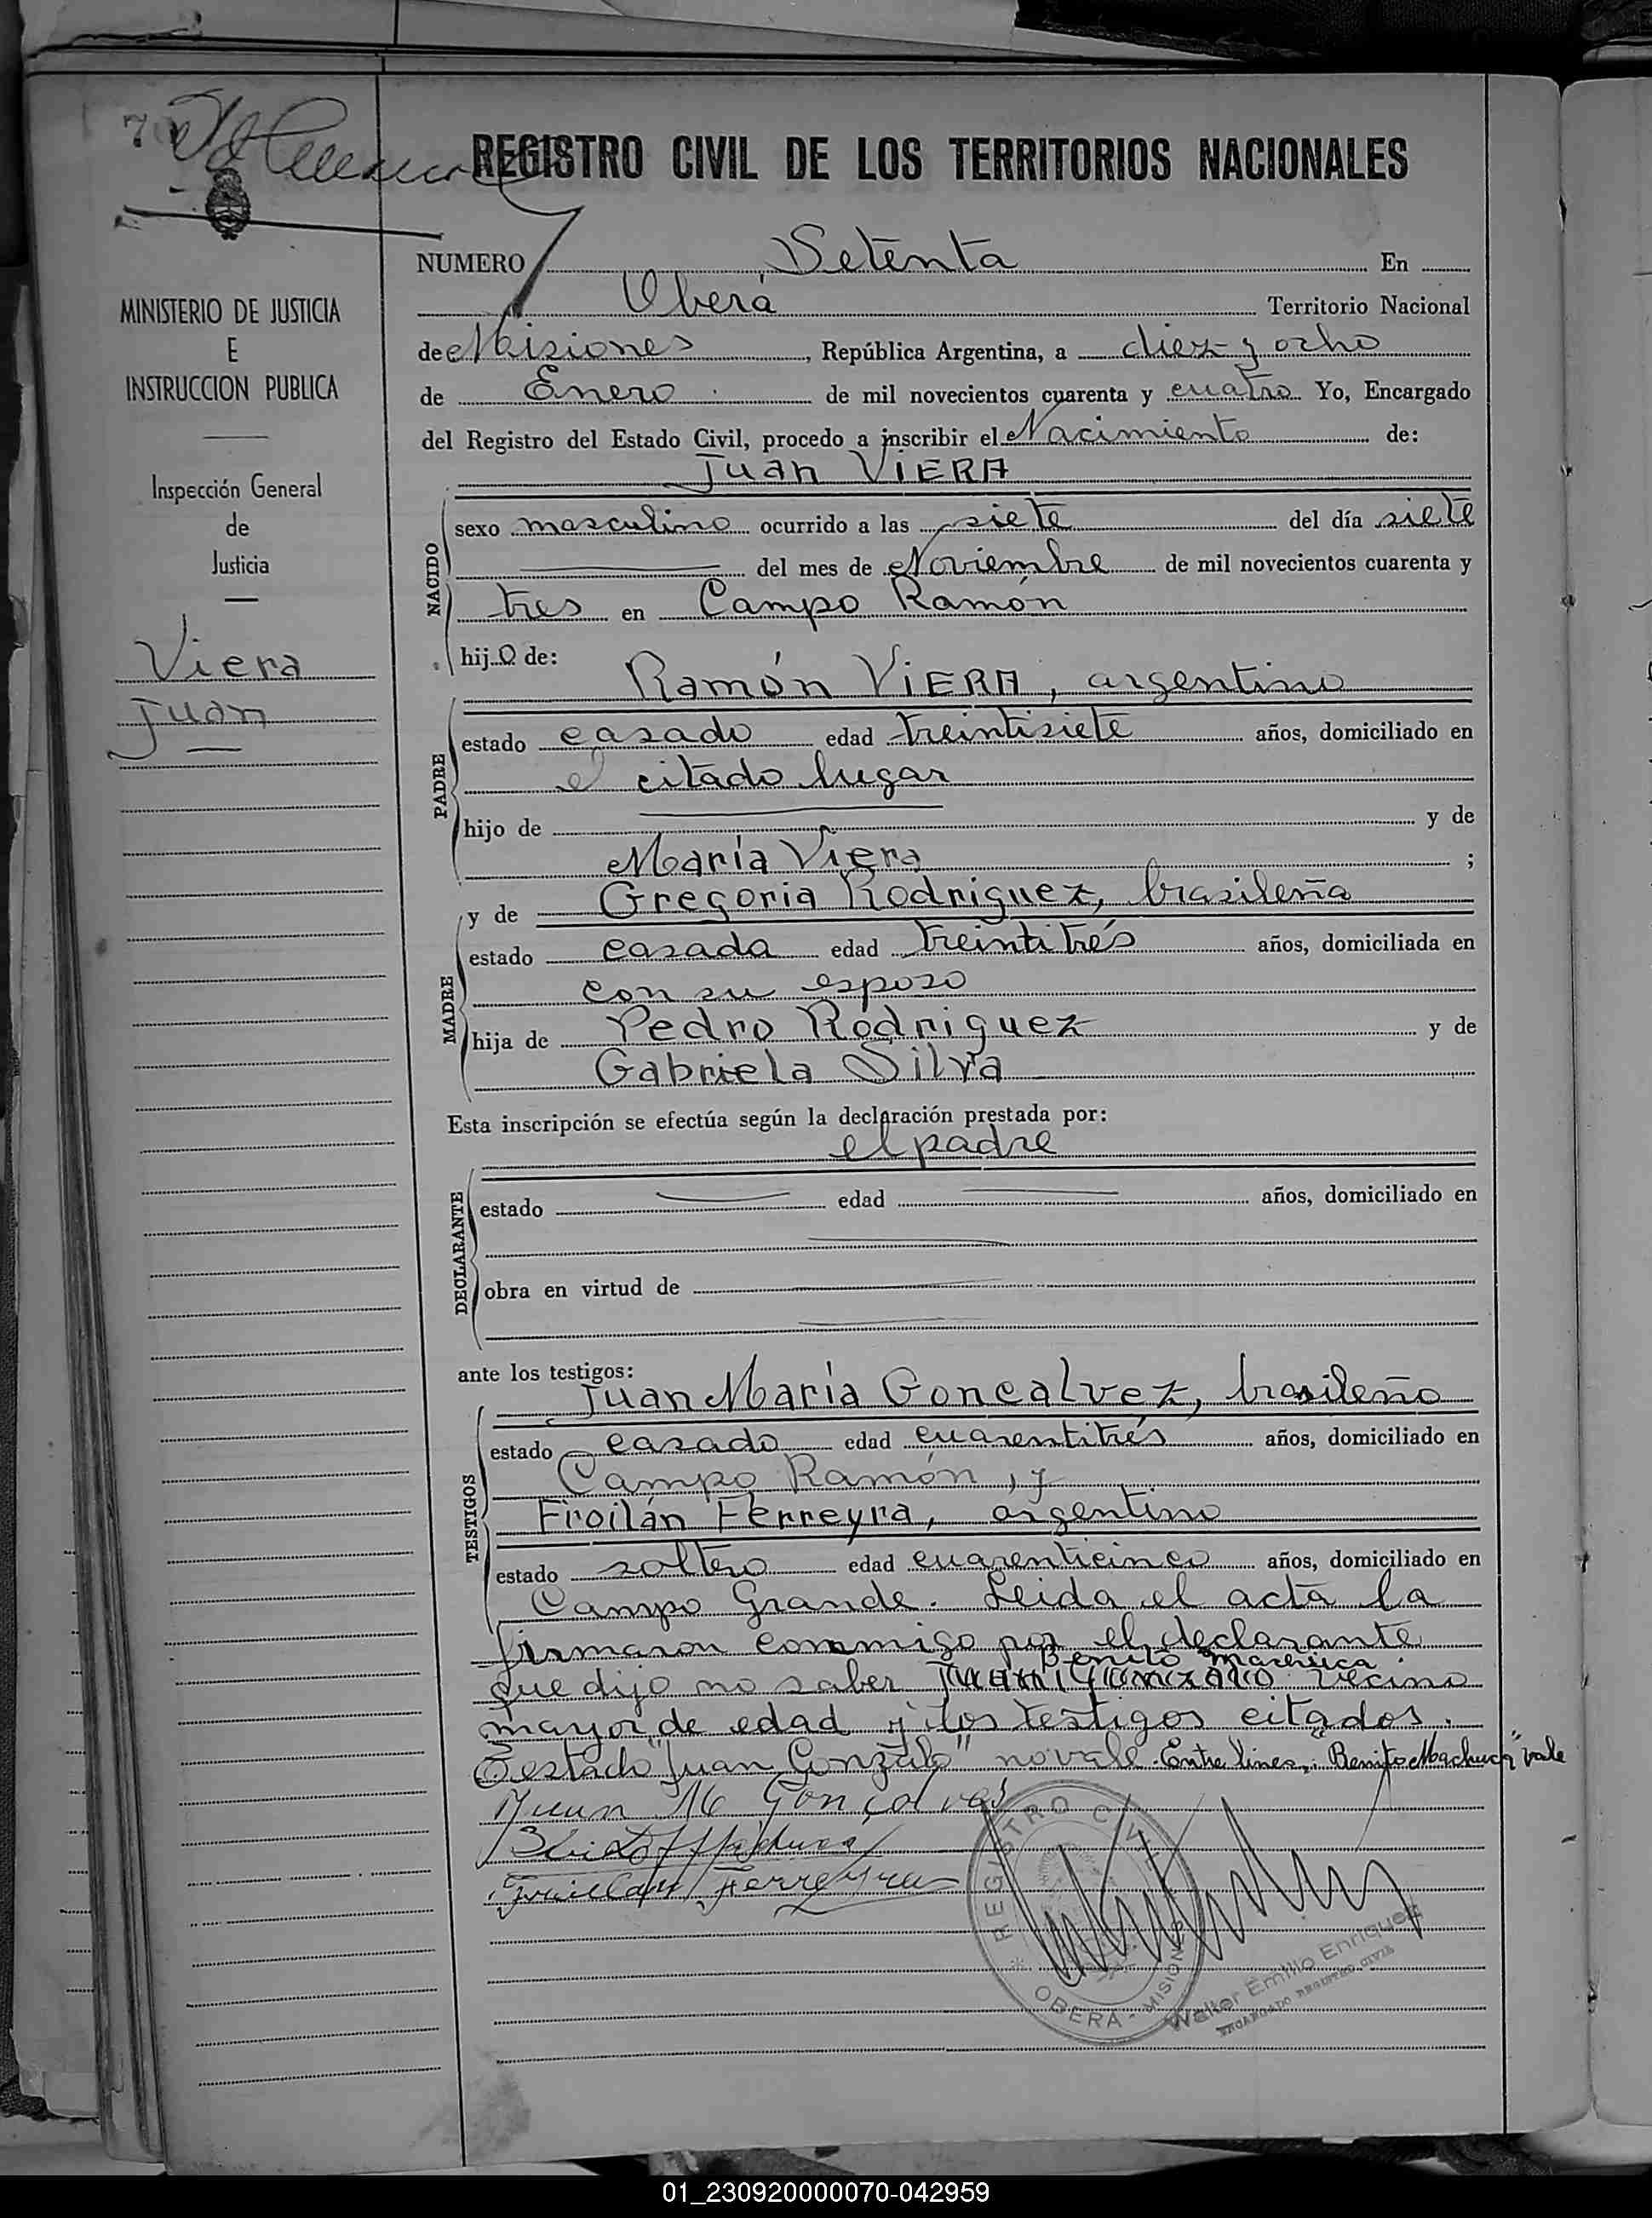 70
REGISTRO CIVIL DE LOS TERRITORIOS NACIONALES
MINISTERIO DE JUSTICIA
E
INSTRUCCION PUBLICA
Inspección General
de
Justicia
Viera
Juan
NUMERO Setenta En
Oberá Territorio Nacional
de Misiones, República Argentina, a diez y ocho
de Enero de mil novecientos cuarenta y cuatro Yo, Encargado
del Registro del Estado Civil, procedo a inscribir el Nacimiento de:
Juan VIERA
NACIDO
sexo masculino ocurrido a las siete del día siete
del mes de Noviembre de mil novecientos cuarenta y
tres en Campo Ramón
hijo de:
Ramón VIERA, argentino
PADRE
estado casado edad treintisiete años, domiciliado en
el citado lugar
hijo de y de
María Viera ;
y de Gregoria Rodriguez, brasileña
MADRE
estado casada edad treintitrés años, domiciliada en
con su esposo
hija de Pedro Rodriguez y de
Gabriela Silva
Esta inscripción se efectúa según la declaración prestada por:
el padre
DECLARANTE
estado edad años, domiciliado en
obra en virtud de
ante los testigos:
Juan María Goncalvez, brasileño
TESTIGOS
estado casado edad cuarentitrés años, domiciliado en
Campo Ramón, y
Froilán Ferreyra, argentino
estado soltero edad cuarenticinco años, domiciliado en
Campo Grande. Leida el acta la
firmaron conmigo por el declarante
Benito Machuca
que dijo no saber Juan Gonzalo vecino
mayor de edad y los testigos citados.
Testado "Juan Gonzalo" no vale. Entre lineas: "Benito Machuca" vale
Juan M Gonçalves
Ferreyra
REGISTRO CIVIL
OBERÁ - MISIONES
Walter Emilio Enriquez
ENCARGADO REGISTRO CIVIL
01_230920000070-042959